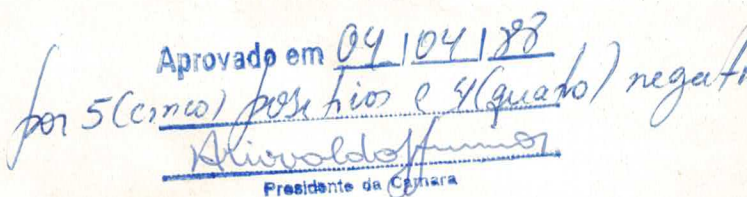 Aprovado em 04/04/88
por 5 (cinco) positivos e 4 (quatro) negati
Presidente da Câmara